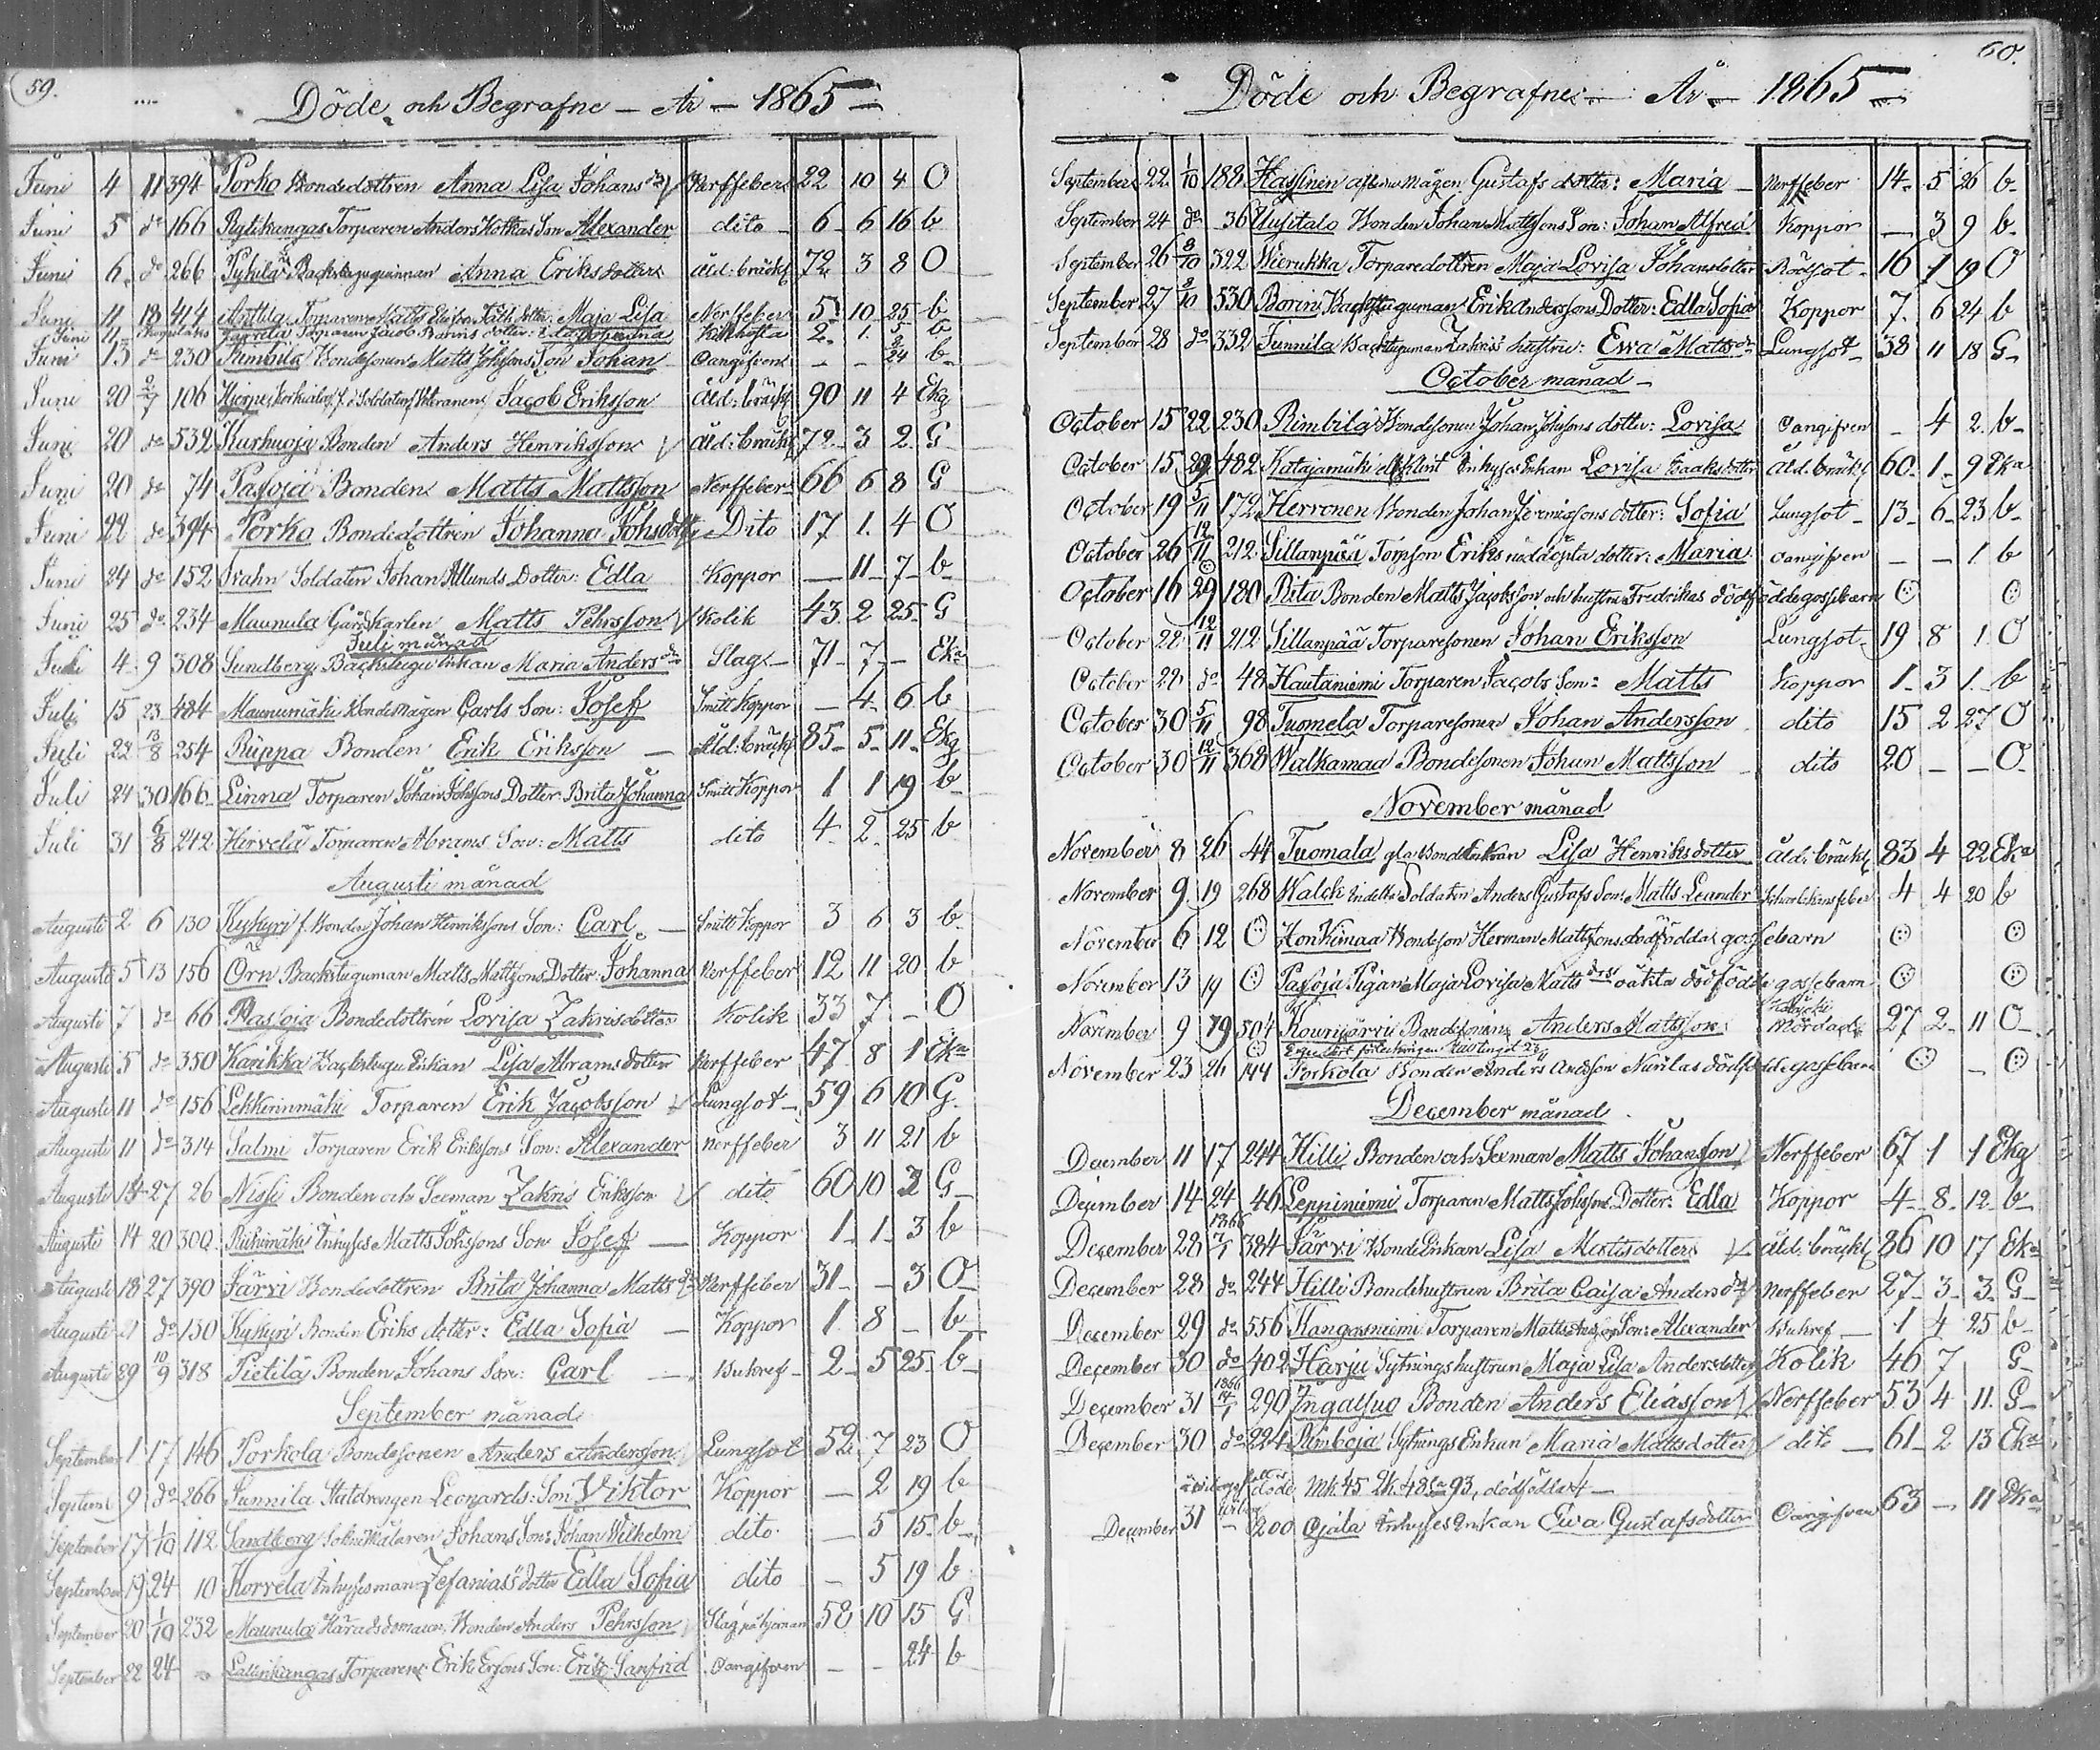 59.
Döde och Begrafne – År – 1865
Juni 4 11 394 Porko Bondedottren Anna Lisa Johans dr Nerffeber 22 10 4 O
Juni 5 do 166 Rytikangas Torparen Anders Hotkas Son Alexander dito 6 6 16 b
Juni 6 do 266 Pyhilä Backstuguqvinnan Anna Eriksdotter åld: bräckl 72 3 8 O
Juni 11 18 414 Anttila Torparen Matts dotter: Maja Lisa Nerffeber 5 10 25 b
Juni 11 Torparen Jacob dotter: Kikhosta 2 1 5 b
Juni 13 do 230 Rimbilä Bondesonen Matts Johssons Son Johan Oangifven – – 24 b
Juni 20 2/7 106 Hjerpe Soldaten Veteranen Jacob Eriksson åld: bräckl 90 11 4 Ekg
Juni 20 do 532 Kurhuoja Bonden Anders Henriksson åld: bräckl 72 3 2 G
Juni 20 do 74 Passoja Bonden Matts Mattsson Nerffeber 66 6 8 G
Juni 22 do 394 Porko Bondedottren Johanna Johsdotter Dito 17 1 4 O
Juni 24 do 152 Svahn Soldaten Johan Allunds Dotter: Edla Koppor – 11 7 b
Juni 25 do 234 Maunula Gårdskarlen Matts Pehrsson Kolik 43 2 25 G
Juli månad
Juli 4 9 308 Sundberg Backstugu Enkan Maria Anders dr Slag 71 7 – Eka
Juli 15 23 484 Maunumäki Bondemågen Carls Son: Josef Smitt Koppor – 4 6 b
Juli 22 13/8 254 Ruppa Bonden Erik Eriksson – Åld: bräckl 85 5 11 Ekg
Juli 24 30 166 Linna Torparen Johan Johssons Dotter: Brita Johanna Smitt Koppor 1 1 19 b
Juli 31 6/8 242 Hirvelä Torparen Abrams Son: Matts dito 4 2 25 b
Augusti månad
Augusti 2 6 130 Kykyri f. Bonden Johan Henrikssons Son: Carl – Smitt Koppor 3 6 3 b
Augusti 5 13 156 Örn Backstuguman Matts Mattsons Dotter: Johanna Nerffeber 12 11 20 b
Augusti 7 do 66 Passoja Bondedottren Lovisa Zakrisdotter Kolik 33 7 – O
Augusti 5 do 350 Karikka Backstugu Enkan Lisa Abramsdotter Nerffeber 47 8 1 Eka
Augusti 11 do 156 Lekkerinmäki Torparen Erik Jacobsson Lungsot 59 6 10 G
Augusti 11 do 314 Salmi Torparen Erik Erikssons Son: Alexander Nerffeber 3 11 21 b
Augusti 14 27 26 Nissi Bonden och Sexman Zakris Eriksson dito 60 10 2 G
Augusti 14 20 300 Riihimäki Inhyses Matts Johssons Son Josef – Koppor 1 1 3 b
Augusti 18 27 390 Järvi Bondedottren Brita Johanna Matts dr Nerffeber 31 – 3 O
Augusti 21 do 130 Kykyri Bonden Eriks dotter: Edla Sofia – Koppor 1 8 – b
Augusti 29 10/9 318 Pietilä Bonden Johans Son: Carl – Bukref 2 5 25 b
September månad
September 1 17 146 Porkola Bondesonen Anders Andersson Lungsot 52 7 23 O
Septemb 9 do 266 Sunnila Statdrengen Leonards Son Viktor Koppor – 2 19 b
September 17 1/10 112 Sandberg Sockne Målaren Johans Son: Johan Wilhelm dito – 5 15 b
September 19 24 10 Korvela Inhysesman Zefanias dotter Edla Sofia dito – 5 19 b
September 20 1/10 232 Maunula Häradsdomaren, Bonden Anders Pehrsson Slag på hjernan 58 10 15 G
September 22 24 Latikangas Torparens Erik Ersons Son: Erik Sanfrid Oangifven – – 24 b
60.
Döde och Begrafne – År – 1865
September 22 1/10 188 Hassinen Gustafs dotter: Maria – Nerffeber 14 5 26 b
September 24 do 36 Uusitalo Bonden Johan Mattsons Son: Johan Alfred Koppor – 3 9 b
September 26 8/10 322 Wierukka Torparedottren Maja Lovisa Johansdotter Rödsot 16 1 19 O
September 27 2/10 530 Borin Backstuguman Erik Anderssons Dotter: Edla Sofia Koppor 7 6 24 b
September 28 do 332 Junnila Backstuguman Zakris's hustru: Ewa Matts dr Lungsot 38 11 18 G
October månad
October 15 22 230 Rimbilä Bondesonen Johan Johssons dotter: Lovisa Oangifven – 4 2 b
October 15 29 482 Katajamäki Inhyses Enkan Lovisa Isaaksdotter åld. bräckl 60 1 9 Eka
October 19 5/11 172 Herronen Bonden Johan Jeremissons dotter: Sofia Lungsot 13 6 23 b
October 26 12/11 212 Sillanpää Torpson Eriks nöddöpta dotter: Maria Oangifven – – 1 b
October 16 29 180 Rita Bonden Matts Jacobsson och hustru Fredrikas dödfödde gossebarn
October 22 12/11 212 Sillanpää Torparesonen Johan Eriksson Lungsot 19 8 1 O
October 22 do 48 Hautaniemi Torparen Jacobs Son: Matts Koppor 1 3 1 b
October 30 5/11 98 Tuomela Torparesonen Johan Andersson dito 15 2 27 O
October 30 12/11 368 Walkamaa Bondesonen Johan Mattsson dito 20 – – O
November månad
November 8 26 44 Tuomala gla Bondenkan Lisa Henriksdotter åld: bräckl 83 4 22 Eka
November 9 19 268 Walck Indelta Soldaten Anders Gustafs Son: Matts Leander Scharlakansfeber 4 4 20 b
November 6 12 Honkimaa Bondeson Herman Mattsons dödfödda gossebarn
November 13 19 Passoja Pigan Maja Lovisa Matts drs oäkta dödfödde gossebarn
November 9 19 504 Kourijärvi Bondesonen Anders Mattsson mördad 27 2 11 O
November 23 26 144 Porkola Bonden Anders Andsson Nurilas dödfödde gossebarn
December månad
December 11 17 244 Hilli Bonden och Sexman Matts Johansson Nerffeber 67 1 1 Ekg
December 14 24 46 Leppiniemi Torparen Matts Johssons Dotter: Edla Koppor 4 8 12 b
December 28 1866 7/1 384 Järvi Bonde Enkan Lisa Mattsdotter åld. bräckl 86 10 17 Eka
December 28 do 244 Hilli Bondehustrun Brita Caisa Anders dr Nerffeber 27 3 3 G
December 29 do 556 Kangasniemi Torparen Matts Andsons Son: Alexander Bukref – 1 4 25 b
December 30 do 402 Harju Sytningshustrun Maja Lisa Andersdotter Kolik 46 7 G
December 31 1866 14/1 290 Ingalsuo Bonden Anders Eliasson Nerffeber 53 4 11 G
December 30 do 224 Rimboja Sytnings Enkan Maria Mattsdotter dito – 61 2 13 Eka
döde, Mk. 45 Qk. 48 Sa 93, dödfödde 4 –
December 31 – 200 Ojala Inhyses Enkan Ewa Gustafsdotter Oangifven 63 – 11 Eka